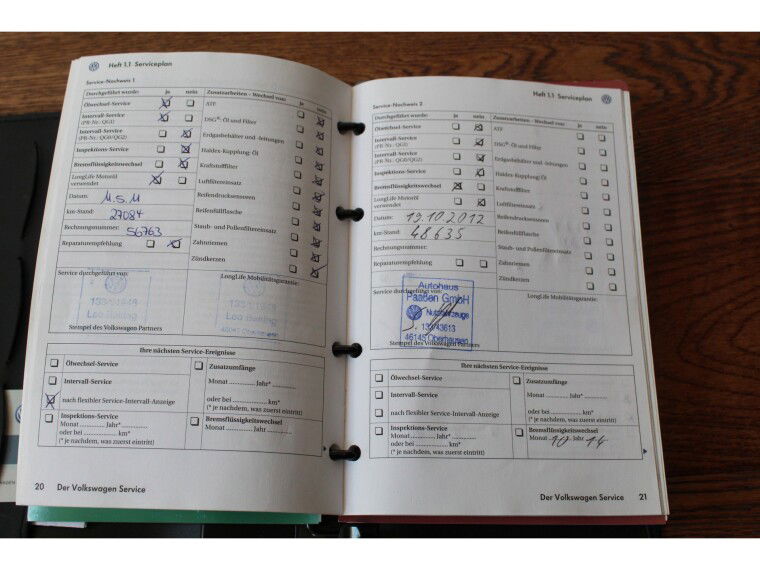 Heft 1.1 Serviceplan
Service-Nachweis 1
Durchgeführt wurde: ja nein
Ölwechsel-Service
Intervall-Service
(PR-Nr.: QG1)
Intervall-Service
(PR-Nr.: QG0/QG2)
Inspektions-Service
Bremsflüssigkeitswechsel
LongLife Motoröl
verwendet
Datum:
km-Stand: 27084
Rechnungsnummer: 56763
Reparaturempfehlung
Zusatzarbeiten - Wechsel von: ja nein
ATF
DSG®: Öl und Filter
Erdgasbehälter und -leitungen
Haldex-Kupplung: Öl
Kraftstofffilter
Luftfiltereinsatz
Reifendrucksensoren
Reifenfüllflasche
Staub- und Pollenfiltereinsatz
Zahnriemen
Zündkerzen
Service durchgeführt von:
LongLife Mobilitätsgarantie:
Stempel des Volkswagen Partners
Ihre nächsten Service-Ereignisse
Ölwechsel-Service
Intervall-Service
nach flexibler Service-Intervall-Anzeige
Inspektions-Service
Monat ............ Jahr* ............
oder bei ............ km*
(* je nachdem, was zuerst eintritt)
Zusatzumfänge
Monat ............ Jahr* ............
oder bei ............ km*
(* je nachdem, was zuerst eintritt)
Bremsflüssigkeitswechsel
Monat ............ Jahr ............
20 Der Volkswagen Service
Heft 1.1 Serviceplan
Service-Nachweis 2
Durchgeführt wurde: ja nein
Ölwechsel-Service
Intervall-Service
(PR-Nr.: QG1)
Intervall-Service
(PR-Nr.: QG0/QG2)
Inspektions-Service
Bremsflüssigkeitswechsel
LongLife Motoröl
verwendet
Datum: 19.10.2012
km-Stand: 48635
Rechnungsnummer:
Reparaturempfehlung
Zusatzarbeiten - Wechsel von: ja nein
ATF
DSG®: Öl und Filter
Erdgasbehälter und -leitungen
Haldex-Kupplung: Öl
Kraftstofffilter
Luftfiltereinsatz
Reifendrucksensoren
Reifenfüllflasche
Staub- und Pollenfiltereinsatz
Zahnriemen
Zündkerzen
Service durchgeführt von:
LongLife Mobilitätsgarantie:
Autohaus
Paaßen GmbH
Nutzfahrzeuge
133/43613
46145 Oberhausen
Stempel des Volkswagen Partners
Ihre nächsten Service-Ereignisse
Ölwechsel-Service
Intervall-Service
nach flexibler Service-Intervall-Anzeige
Inspektions-Service
Monat ............ Jahr* ............
oder bei ............ km*
(* je nachdem, was zuerst eintritt)
Zusatzumfänge
Monat ............ Jahr* ............
oder bei ............ km*
(* je nachdem, was zuerst eintritt)
Bremsflüssigkeitswechsel
Monat 10 Jahr 14
Der Volkswagen Service 21